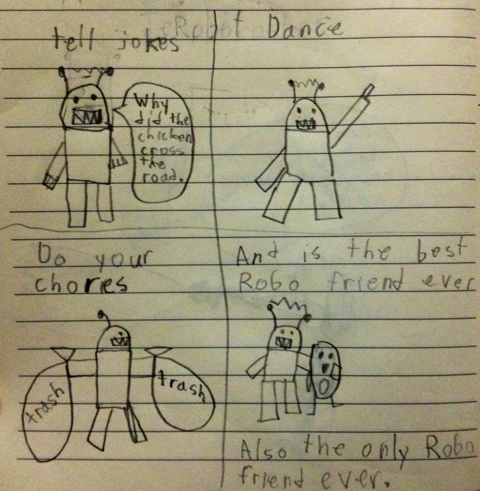 tell jokes
Why
did the
chicken
cross
the
road.
Dance
Do your
chores
trash
trash
And is the best
Robo friend ever
Also the only Robo
friend ever.